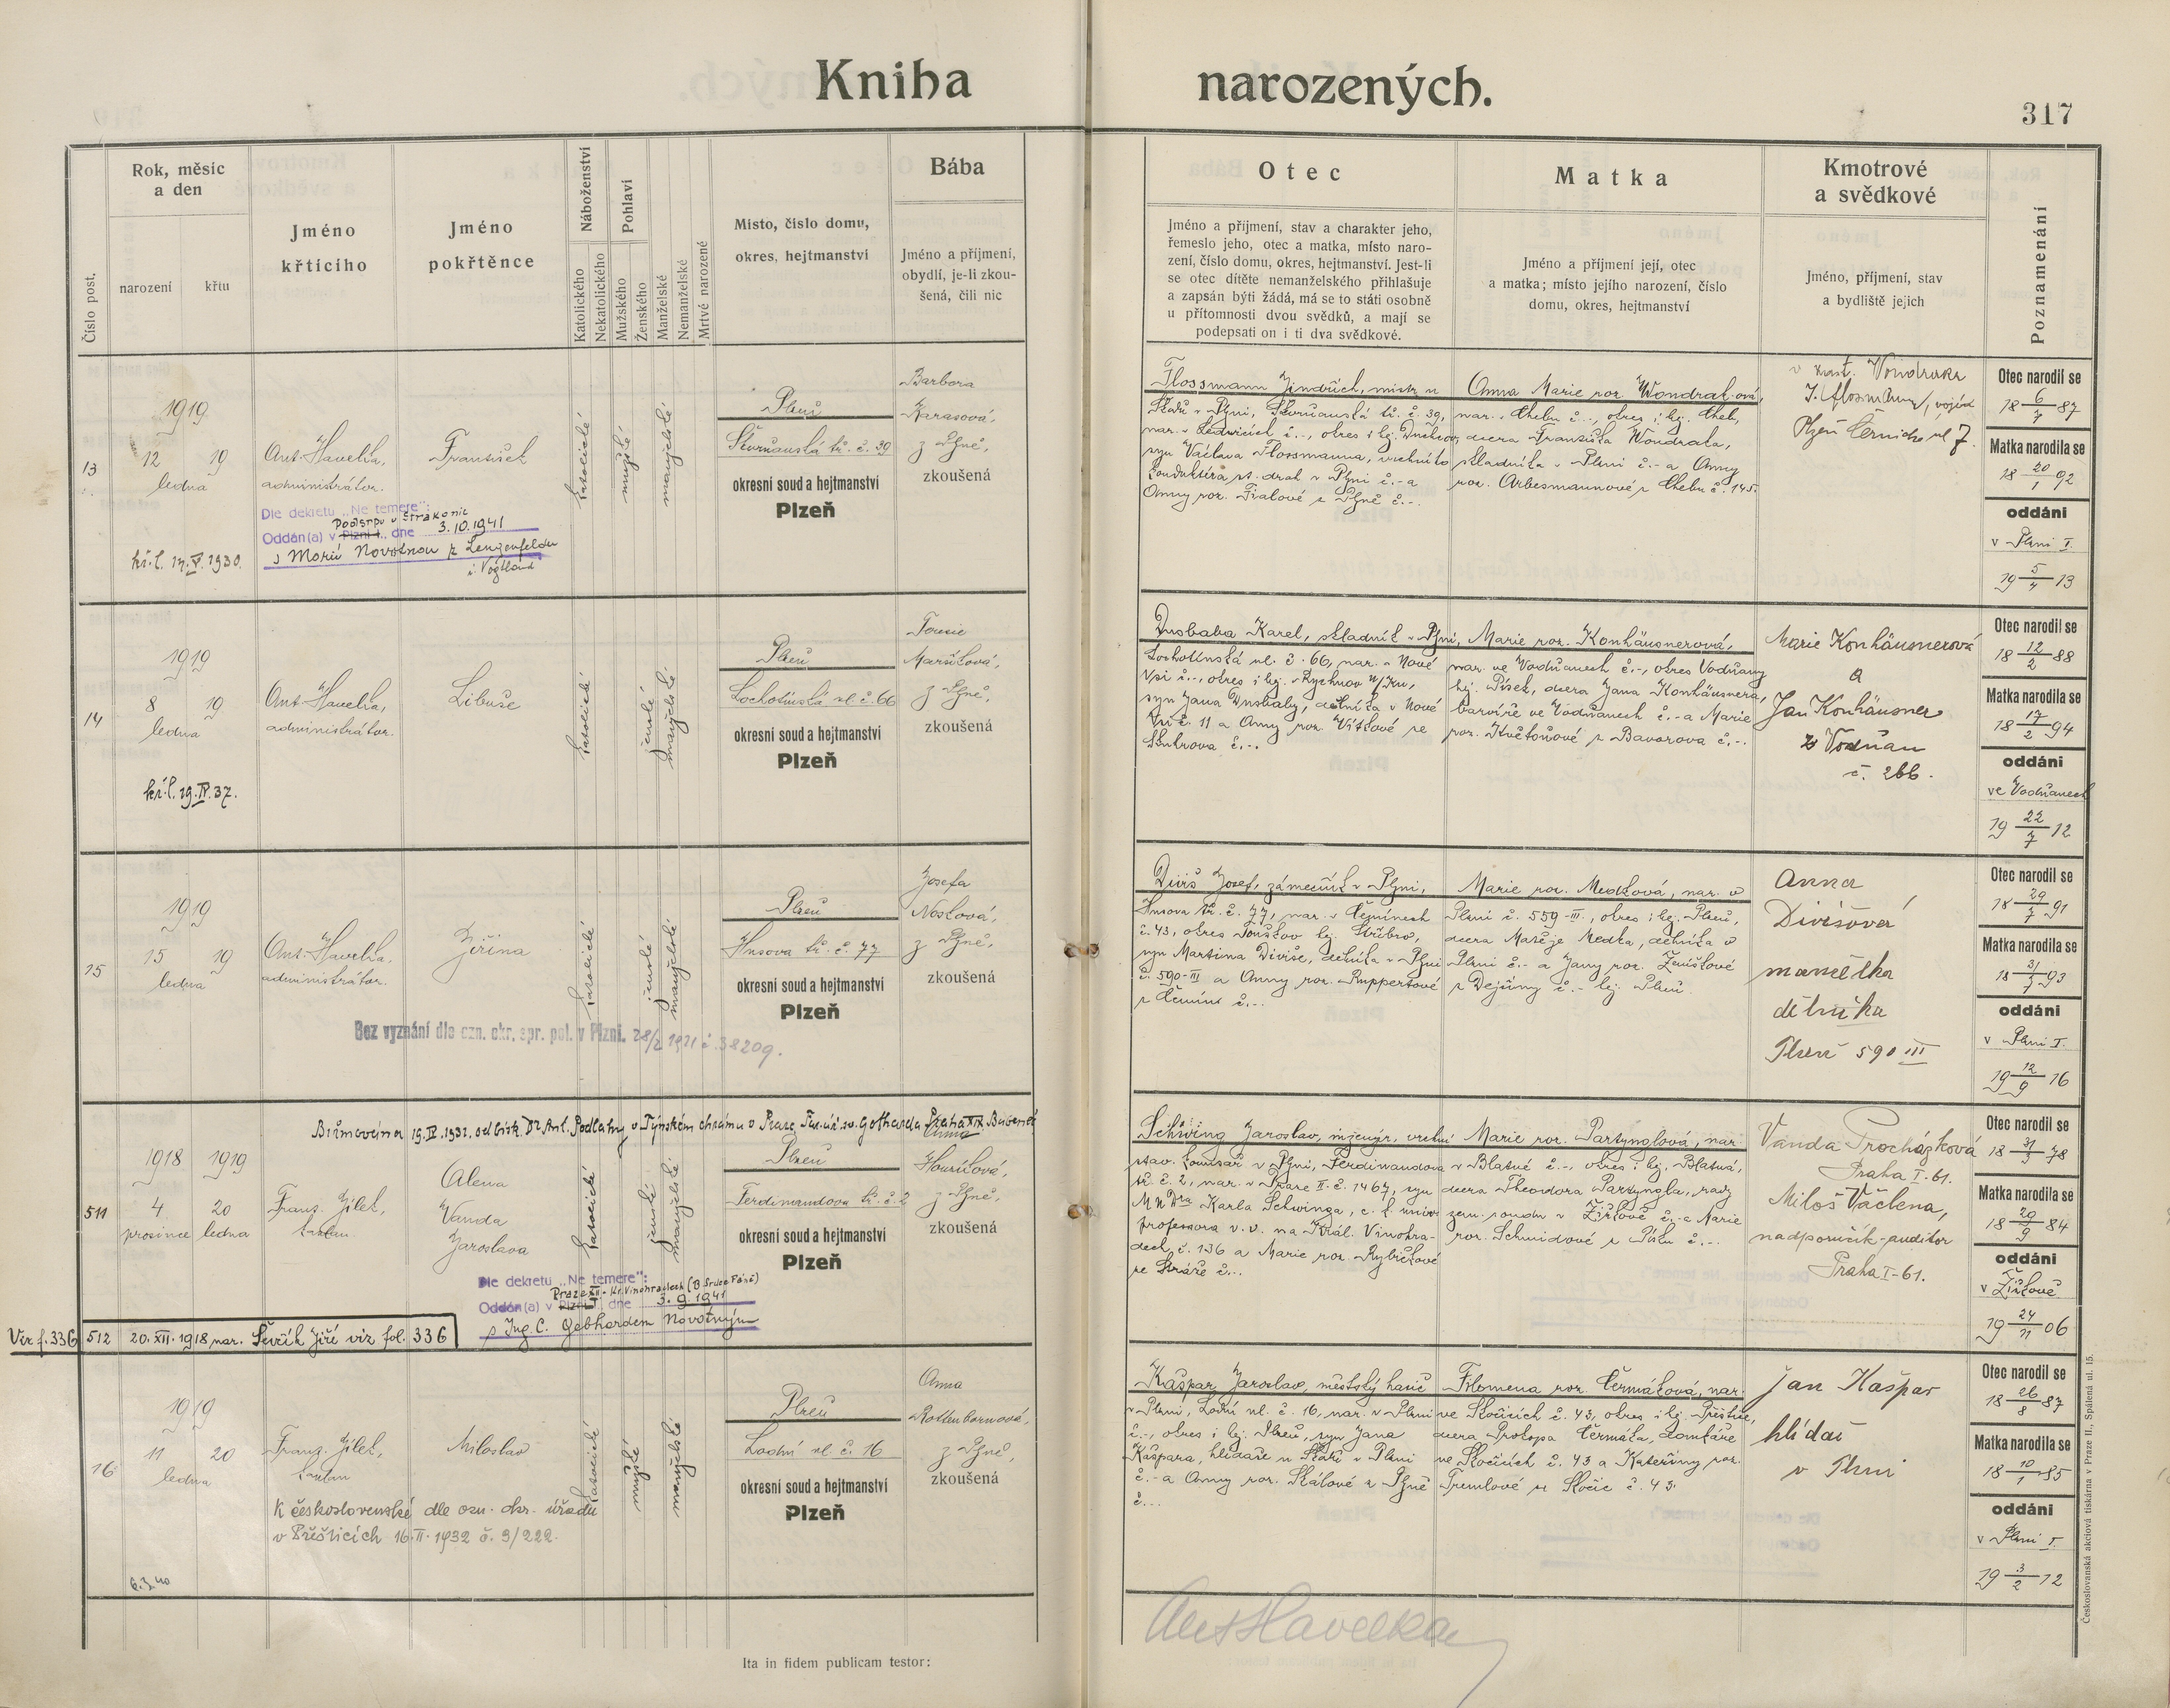 Kniha narozených.
317
Číslo post.
Rok, měsíc
a den
narození
křtu
Jméno
křtícího
Jméno
pokřtěnce
Náboženství
Katolického
Nekatolického
Pohlaví
Mužského
Ženského
Manželské
Nemanželské
Mrtvě narozené
Místo, číslo domu,
okres, hejtmanství
Bába
Jméno a příjmení,
obydlí, je-li zkou-
šená, čili nic
Otec
Jméno a příjmení, stav a charakter jeho,
řemeslo jeho, otec a matka, místo naro-
zení, číslo domu, okres, hejtmanství. Jest-li
se otec dítěte nemanželského přihlašuje
a zapsán býti žádá, má se to státi osobně
u přítomnosti dvou svědků, a mají se
podepsati on i ti dva svědkové.
Matka
Jméno a příjmení její, otec
a matka; místo jejího narození, číslo
domu, okres, hejtmanství
Kmotrové
a svědkové
Jméno, příjmení, stav
a bydliště jejich
Poznamenání
13
1919
12 19
ledna
kř. l. 17.V.1930.
Ant. Havelka,
administrátor.
František
katolické
mužské
manželské
Dle dekretu „Ne temere":
Podsrpu u Strakonic
Oddán(a) v Plzni I., dne 3.10.1941
s Marií Novotnou z Lengenfeldu
i. Vogtland
Plzeň
Skvrňanská tř. č. 39
okresní soud a hejtmanství
Plzeň
Barbora
Karasová,
z Plzně,
zkoušená
Flossmann Jindřich, mistr u
Škodů v Plzni, Skvrňanská tř. č. 39,
nar. v Ledvicích č.-, okres i hej. Duchcov,
syn Václava Flossmanna, vrchního
konduktéra st. drah v Plzni č.- a
Anny roz. Fialové z Plzně č.-.
Anna Marie roz. Wondrak-ová,
nar. v Chebu č.-, okres i hej. Cheb,
dcera Františka Wondraka,
skladníka v Plzni č.- a Anny
roz. Arbesmannové z Chebu č. 145.
v zast. Wondraka
J. Flosmann, vojín
Plzeň Černická ul 7.
Otec narodil se
18 6/7 87
Matka narodila se
18 20/1 92
oddáni
v Plzni I.
19 5/4 13
14
1919
8 19
ledna
kř. l. 19.IV.37.
Ant. Havelka,
administrátor.
Libuše
katolické
ženské
manželské
Plzeň
Lochotínská ul. č. 66
okresní soud a hejtmanství
Plzeň
Terezie
Maršíková,
z Plzně,
zkoušená
Dusbaba Karel, skladník v Plzni,
Lochotínská ul. č. 66, nar. v Nové
Vsi č.-, okres i hej. Rychnov n/Kn,
syn Jana Dusbaby, dělníka v Nové
Vsi č. 11 a Anny roz. Vítkové ze
Skuhrova č.-.
Marie roz. Konhäusnerová,
nar. ve Vodňanech č.-, okres Vodňany
hej. Písek, dcera Jana Konhäusnera,
barvíře ve Vodňanech č.- a Marie
roz. Květoňové z Bavorova č.-.
Marie Konhäusnerová
a
Jan Konhäusner
z Vodňan
č. 266.
Otec narodil se
18 12/2 88
Matka narodila se
18 17/2 94
oddáni
ve Vodňanech
19 22/7 12
15
1919
15 19
ledna
Ant. Havelka,
administrátor.
Jiřina
katolické
ženské
manželské
Bez vyznání dle ozn. okr. spr. pol. v Plzni. 28/2 1921 č. 38209.
Plzeň
Husova tř. č. 77
okresní soud a hejtmanství
Plzeň
Josefa
Nosková,
z Plzně,
zkoušená
Diviš Josef, zámečník v Plzni,
Husova tř. č. 77, nar. v Čemínech
č. 43, okres Touškov hej. Stříbro,
syn Martina Diviše, dělníka v Plzni
č. 590-III a Anny roz. Ruppertové
z Čemín č.-.
Marie roz. Medková, nar. v
Plzni č. 559-III., okres i hej. Plzeň,
dcera Matěje Medka, dělníka v
Plzni č.- a Jany roz. Zeníškové
z Dejšiny č.- hej. Plzeň.
Anna
Divišová
manželka
dělníka
Plzeň 590 III
Otec narodil se
18 29/7 91
Matka narodila se
18 31/7 93
oddáni
v Plzni I.
19 12/9 16
Biřmována 19.IV.1932. od bisk. Dr Ant. Podlahy v Týnském chrámu v Praze, Far. úř. sv. Gotharda Praha XIX. Bubeneč
511
1918 1919
4 20
prosince ledna
Franz. Jílek,
kaplan.
Alena
Vanda
Jaroslava
katolické
ženské
manželské
Dle dekretu „Ne temere":
Praze XII - Kr. Vinohradech (B. Srdce Páně)
Oddán(a) v Plzni I., dne 3.9.1941
s Ing. C. Gebhardem Novotným
Plzeň
Ferdinandova tř. č. 2
okresní soud a hejtmanství
Plzeň
Anna
Houšková,
z Plzně,
zkoušená
Schwing Jaroslav, inženýr, vrchní
stav. komisař v Plzni, Ferdinandova
tř. č. 2, nar. v Praze II. č. 1467, syn
MUDra Karla Schwinga, c. k. univ.
professora v. v. na Král. Vinohra-
dech č. 136 a Marie roz. Rybičkové
ze Stráže č.-.
Marie roz. Partynglová, nar.
v Blatné č.-, okres i hej. Blatná,
dcera Theodora Partyngla, rady
zem. soudu v Žižkově č.- a Marie
roz. Schmidové z Písku č.-.
Vanda Procházková
Praha I-61.
Miloš Váchena,
nadporučík-auditor
Praha I-61.
Otec narodil se
18 31/3 78
Matka narodila se
18 29/9 84
oddáni
v Žižkově
19 24/11 06
Viz f. 336
512 20.XII.1918 nar. Ševčík Jiří viz fol. 336
16
1919
11 20
ledna
6.3.40
Franz. Jílek,
kaplan
Miloslav
katolické
mužské
manželské
K československé dle ozn. okr. úřadu
v Přešticích 16.II.1932 č. 9/222.
Plzeň
Lodní ul. č. 16
okresní soud a hejtmanství
Plzeň
Anna
Rottenbornová,
z Plzně,
zkoušená
Kašpar Jaroslav, městský hasič
v Plzni, Lodní ul. č. 16, nar. v Plzni
č.-, okres i hej. Plzeň, syn Jana
Kašpara, hlídače u Škodů v Plzni
č.- a Anny roz. Skálové z Plzně
č.-.
Filomena roz. Čermáková, nar.
ve Skočicích č. 43, okres i hej. Přeštice,
dcera Prokopa Čermáka, domkáře
ve Skočicích č. 43 a Kateřiny roz.
Tremlové ze Skočic č. 43.
Jan Kašpar
hlídač
v Plzni
Otec narodil se
18 26/8 87
Matka narodila se
18 10/1 85
oddáni
v Plzni I.
19 3/2 12
Ant Havelka
Ita in fidem publicam testor:
Československá akciová tiskárna v Praze II., Spálená ul. 15.